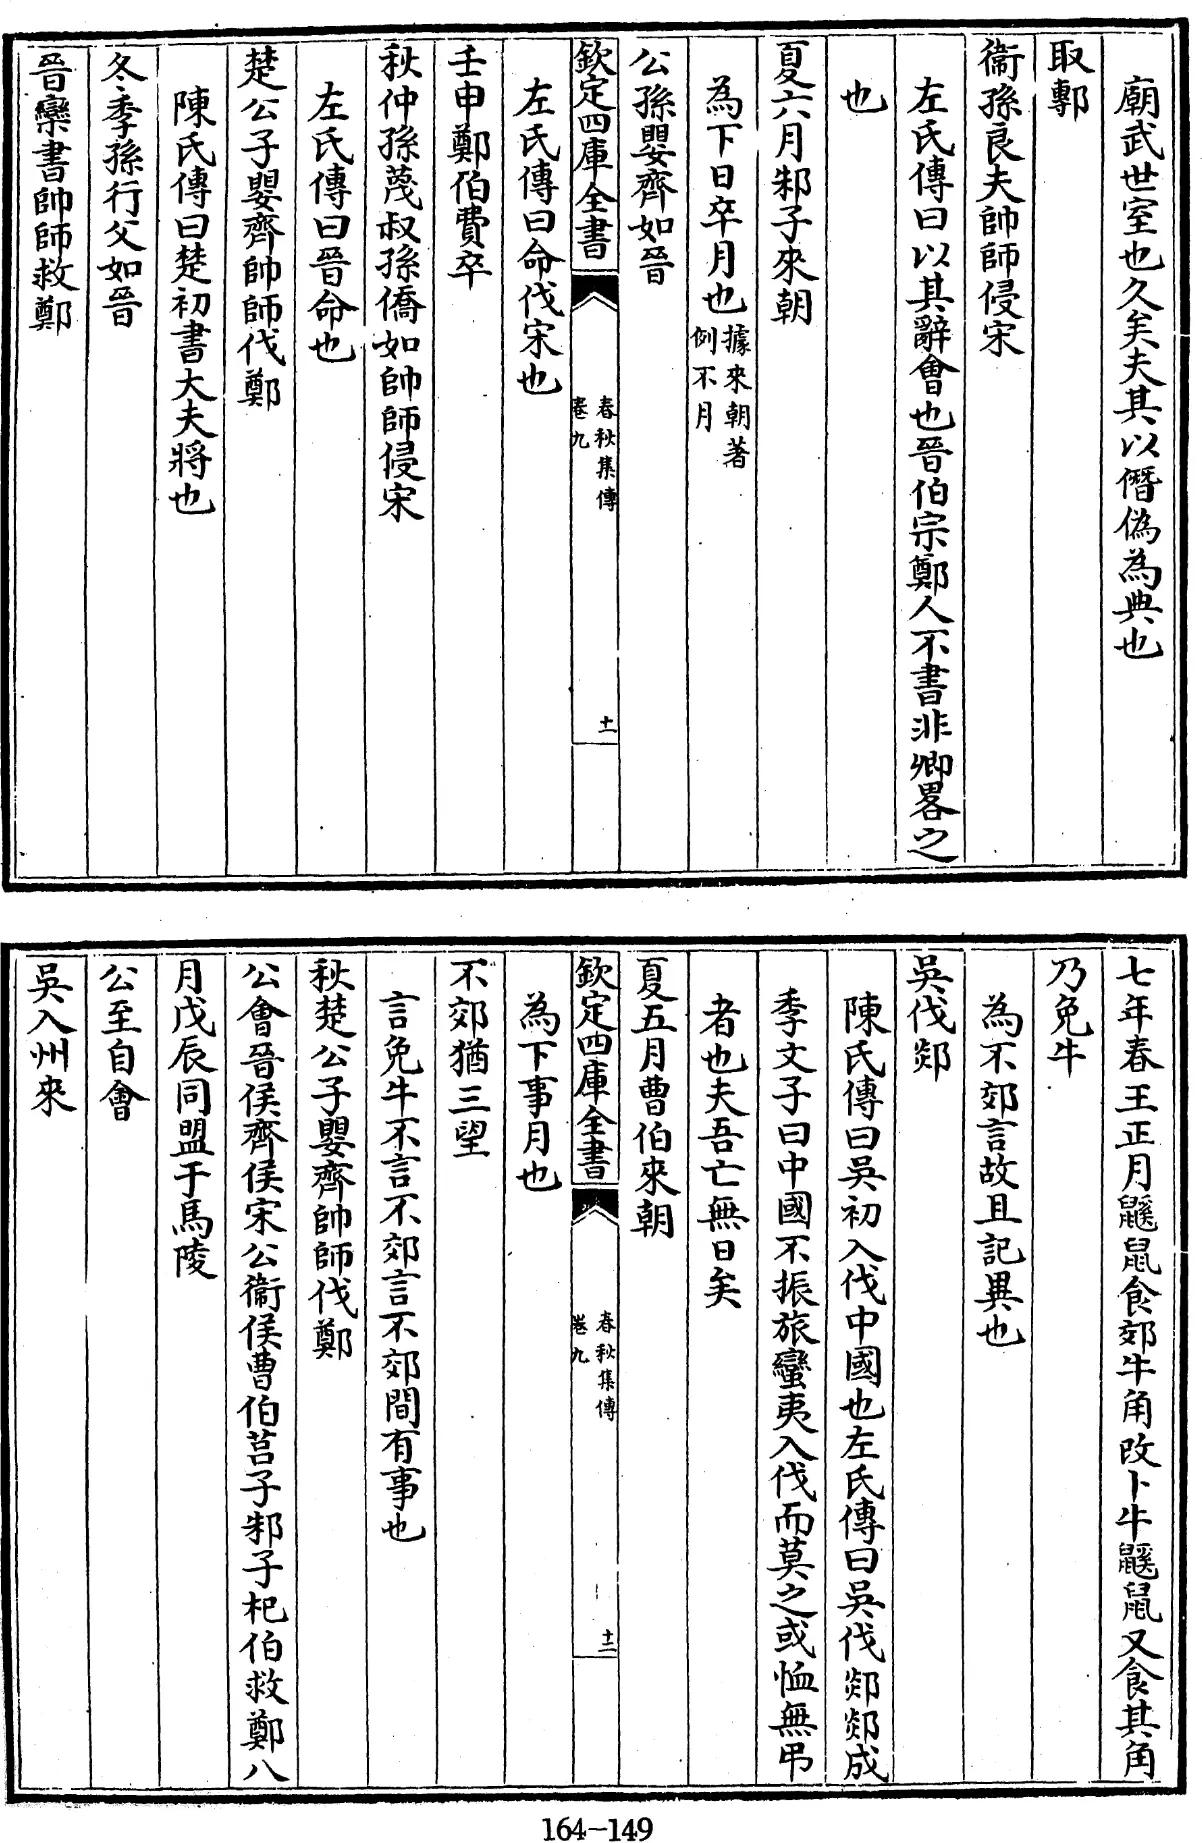 廟武世室也久矣夫其以僭偽為典也
取鄟
衞孫良夫帥師侵宋
左氏傳曰以其辭會也晉伯宗鄭人不書非卿畧之
也
夏六月邾子來朝
為下日卒月也據來朝著
例不月
公孫嬰齊如晉
欽定四庫全書
春秋集傳
卷九
十一
左氏傳曰命伐宋也
壬申鄭伯費卒
秋仲孫蔑叔孫僑如帥師侵宋
左氏傳曰晉命也
楚公子嬰齊帥師伐鄭
陳氏傳曰楚初書大夫將也
冬季孫行父如晉
晉欒書帥師救鄭
七年春王正月鼷鼠食郊牛角改卜牛鼷鼠又食其角
乃免牛
為不郊言故且記異也
吳伐郯
陳氏傳曰吳初入伐中國也左氏傳曰吳伐郯郯成
季文子曰中國不振旅蠻夷入伐而莫之或恤無弔
者也夫吾亡無日矣
夏五月曹伯來朝
欽定四庫全書
春秋集傳
卷九
十二
為下事月也
不郊猶三望
言免牛不言不郊言不郊間有事也
秋楚公子嬰齊帥師伐鄭
公會晉侯齊侯宋公衞侯曹伯莒子邾子杞伯救鄭八
月戊辰同盟于馬陵
公至自會
吳入州來
164-149